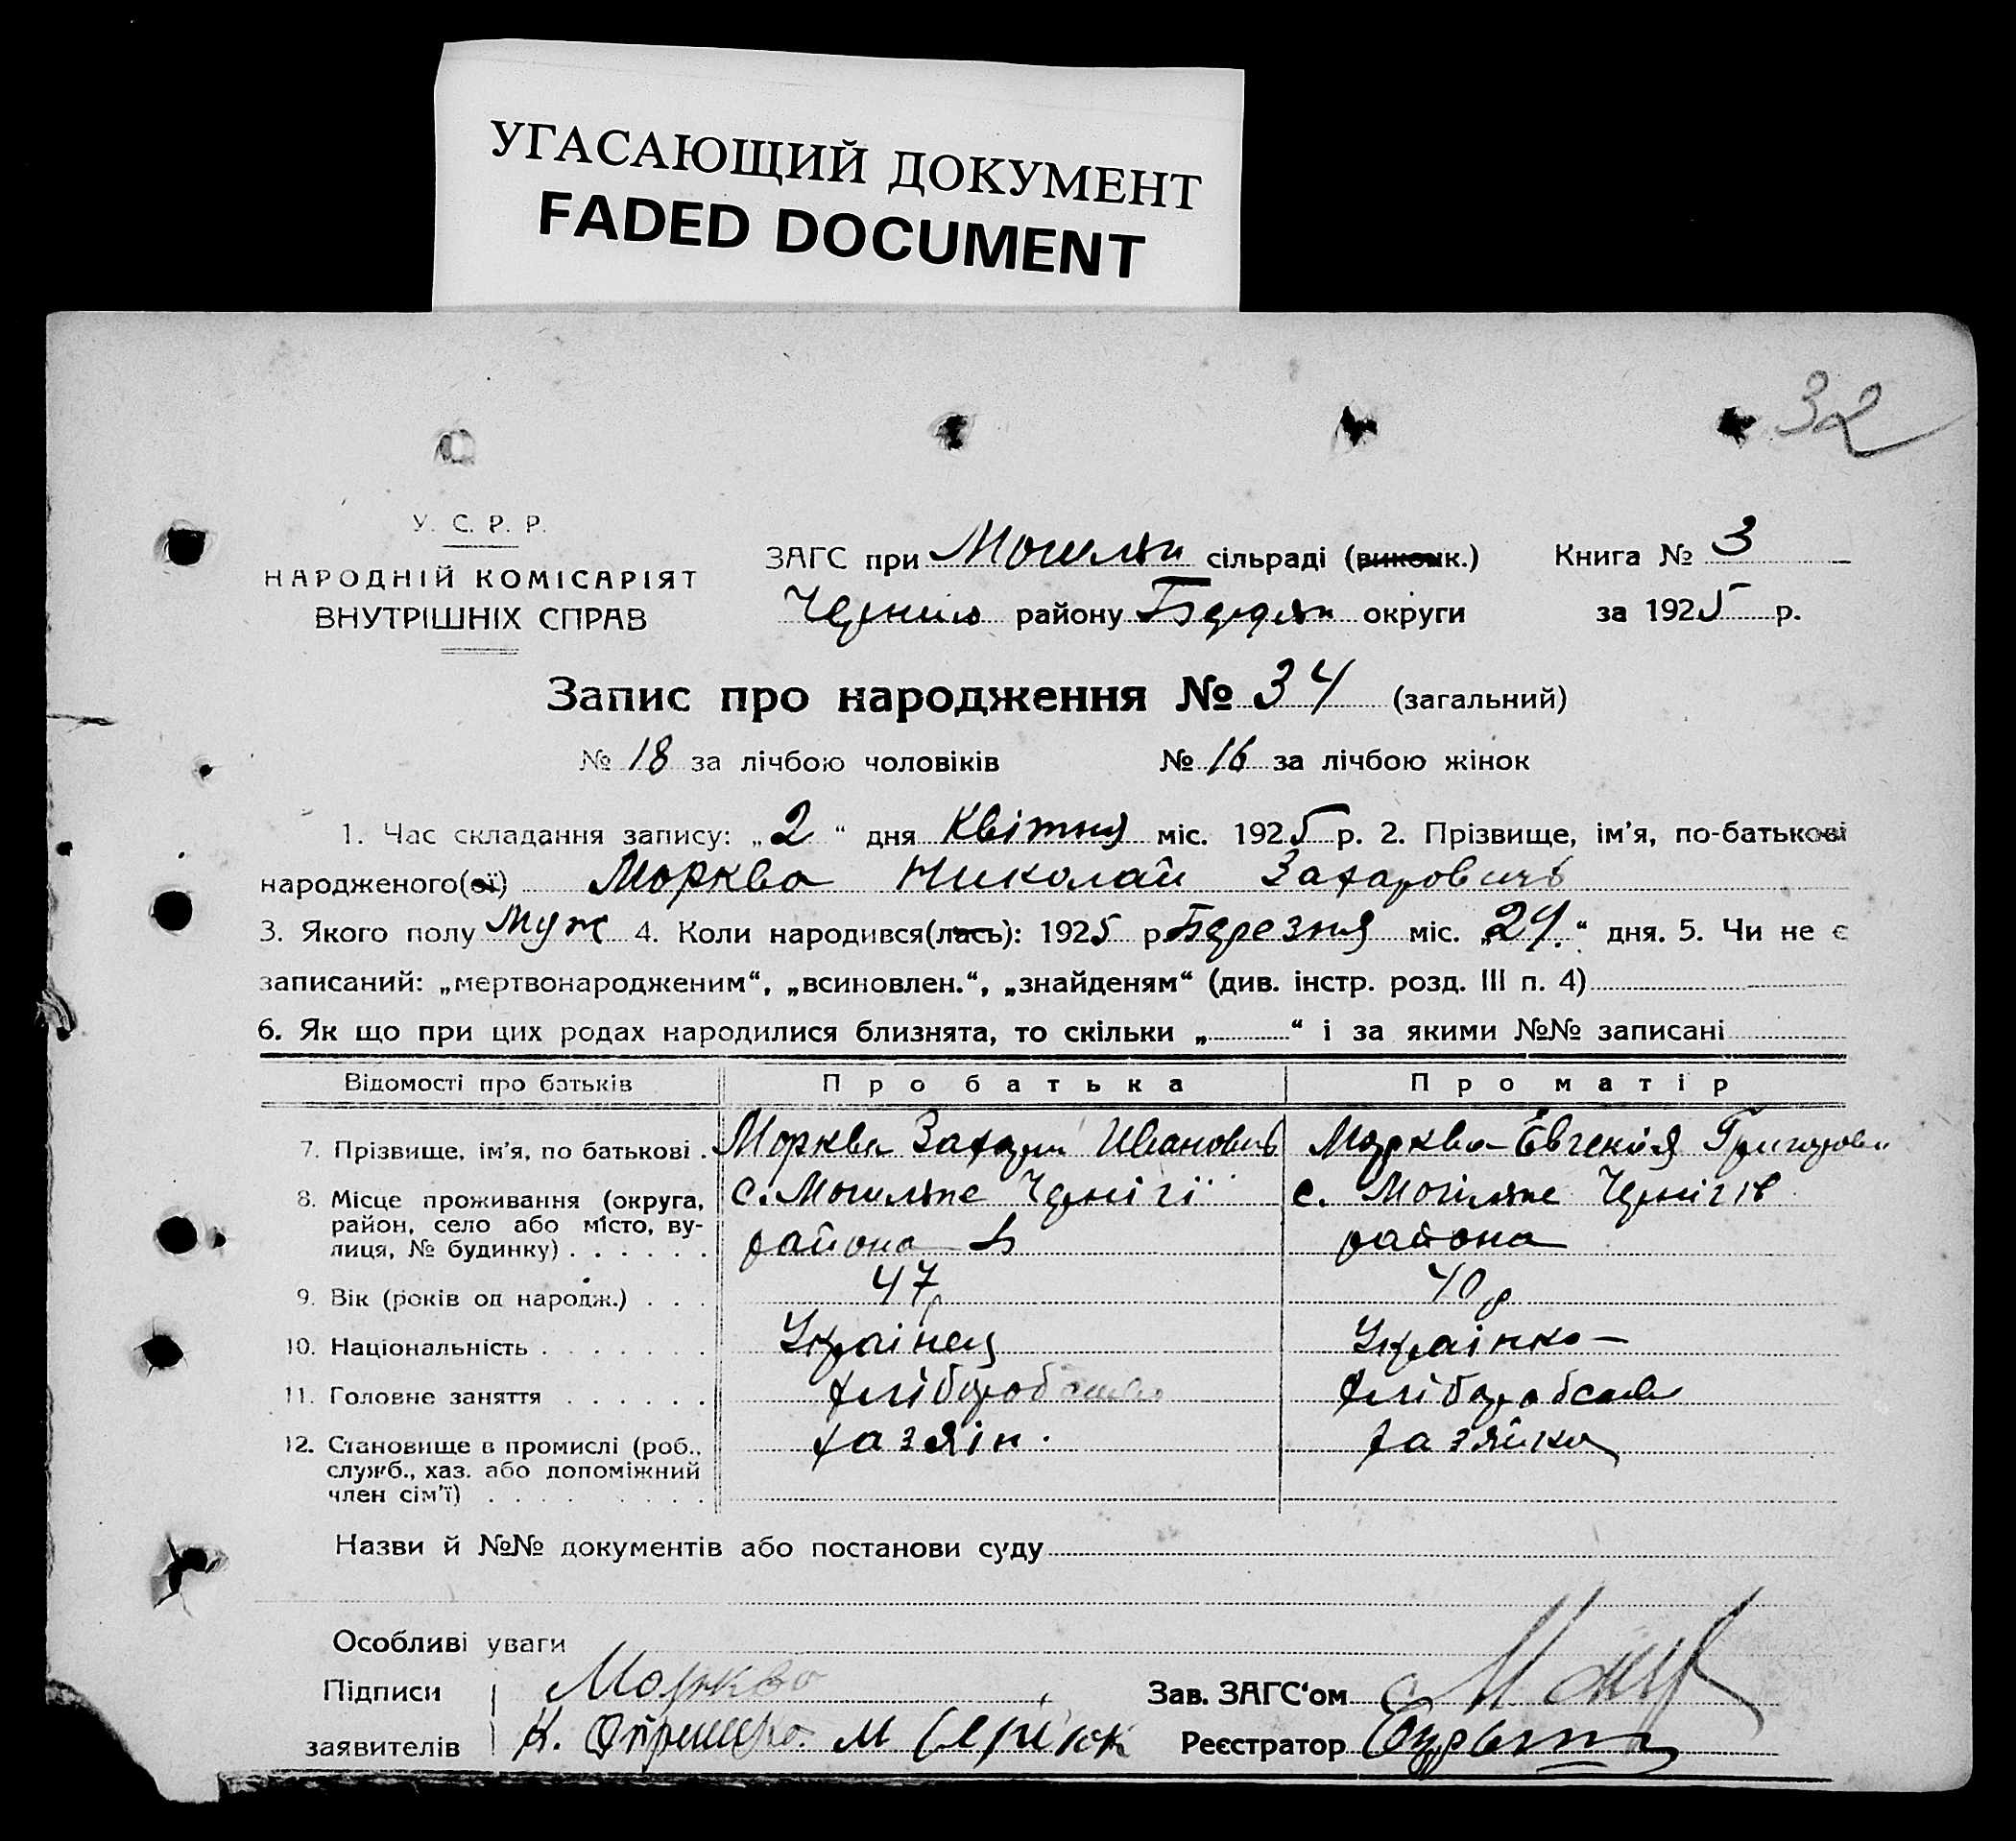 УГАСАЮЩИЙ ДОКУМЕНТ
FADED DOCUMENT
32
У. С. Р. Р.
НАРОДНІЙ КОМІСАРІЯТ
ВНУТРІШНІХ СПРАВ
ЗАГС при Могилян сільраді (виконк.) Книга № 3
Черниг району Бердян округи за 1925 р.
Запис про народження № 34 (загальний)
№ 18 за лічбою чоловіків № 16 за лічбою жінок
1. Час складання запису: „2“ дня Квітня міс. 1925 р. 2. Прізвище, ім'я, по-батькові
народженого(ої) Морква Николай Захаровичь
3. Якого полу Муж 4. Коли народився(лась): 1925 р. Березня міс. „24.“ дня. 5. Чи не є
записаний: „мертвонародженим“, „всиновлен.“, „знайденям“ (див. інстр. розд. III п. 4)
6. Як що при цих родах народилися близнята, то скільки „ “ і за якими №№ записані
Відомості про батьків Про батька Про матір
7. Прізвище, ім'я, по батькові . Морква Захарий Иванович Морква Евгенія Григоровн
8. Місце проживання (округа, с. Могиляне Чернігі с. Могіляне Чернігів
район, село або місто, ву-
лиця, № будинку) . . . . . . района района
9. Вік (років од народж.) . . . 47 р 40 р
10. Національність . . . . . . . Українец Українка
11. Головне заняття . . . . . . хліборобство хліборобство
12. Становище в промислі (роб., хазяін. хазяйка
служб., хаз. або допоміжний
член сім'ї) . . . . . . . . .
Назви й №№ документів або постанови суду
Особливі уваги
Підписи Морква Зав. ЗАГС'ом
заявителів К. М Серіюк Реєстратор